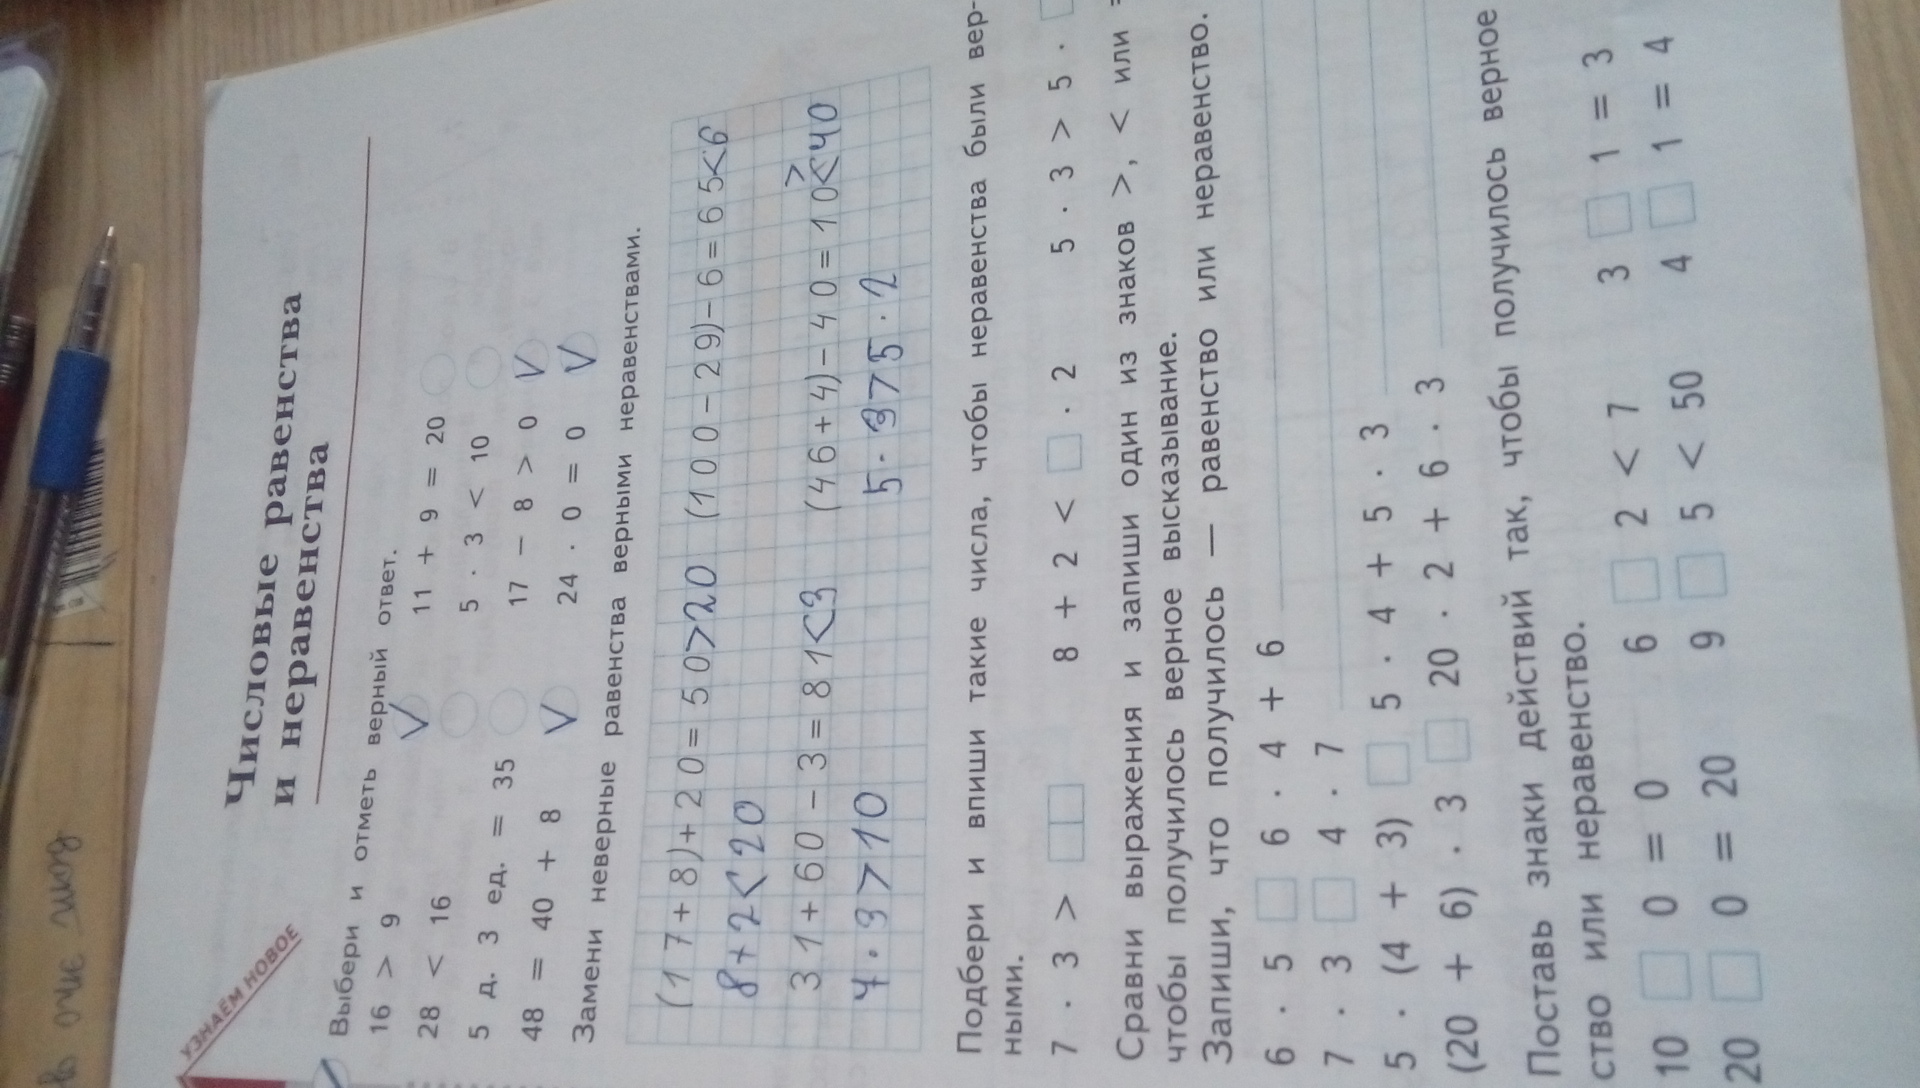 УЗНАЁМ НОВОЕ
Числовые равенства
и неравенства
Выбери и отметь верный ответ.
16 > 9 V 11 + 9 = 20
28 < 16 5 · 3 < 10
5 д. 3 ед. = 35 17 − 8 > 0 V
48 = 40 + 8 V 24 · 0 = 0 V
Замени неверные равенства верными неравенствами.
(17+8)+20=50>20 (100-29)-6=65<6
8+2<20
31+60-3=81<3 (46+4)-40=10<40
>
7·3>10 5·375·2
Подбери и впиши такие числа, чтобы неравенства были вер-
ными.
7 · 3 > □□ 8 + 2 < □ · 2 5 · 3 > 5 · □
Сравни выражения и запиши один из знаков >, < или =
чтобы получилось верное высказывание.
Запиши, что получилось — равенство или неравенство.
6 · 5 □ 6 · 4 + 6
7 · 3 □ 4 · 7
5 · (4 + 3) □ 5 · 4 + 5 · 3
(20 + 6) · 3 □ 20 · 2 + 6 · 3
Поставь знаки действий так, чтобы получилось верное
ство или неравенство.
10 □ 0 = 0 6 □ 2 < 7 3 □ 1 = 3
20 □ 0 = 20 9 □ 5 < 50 4 □ 1 = 4